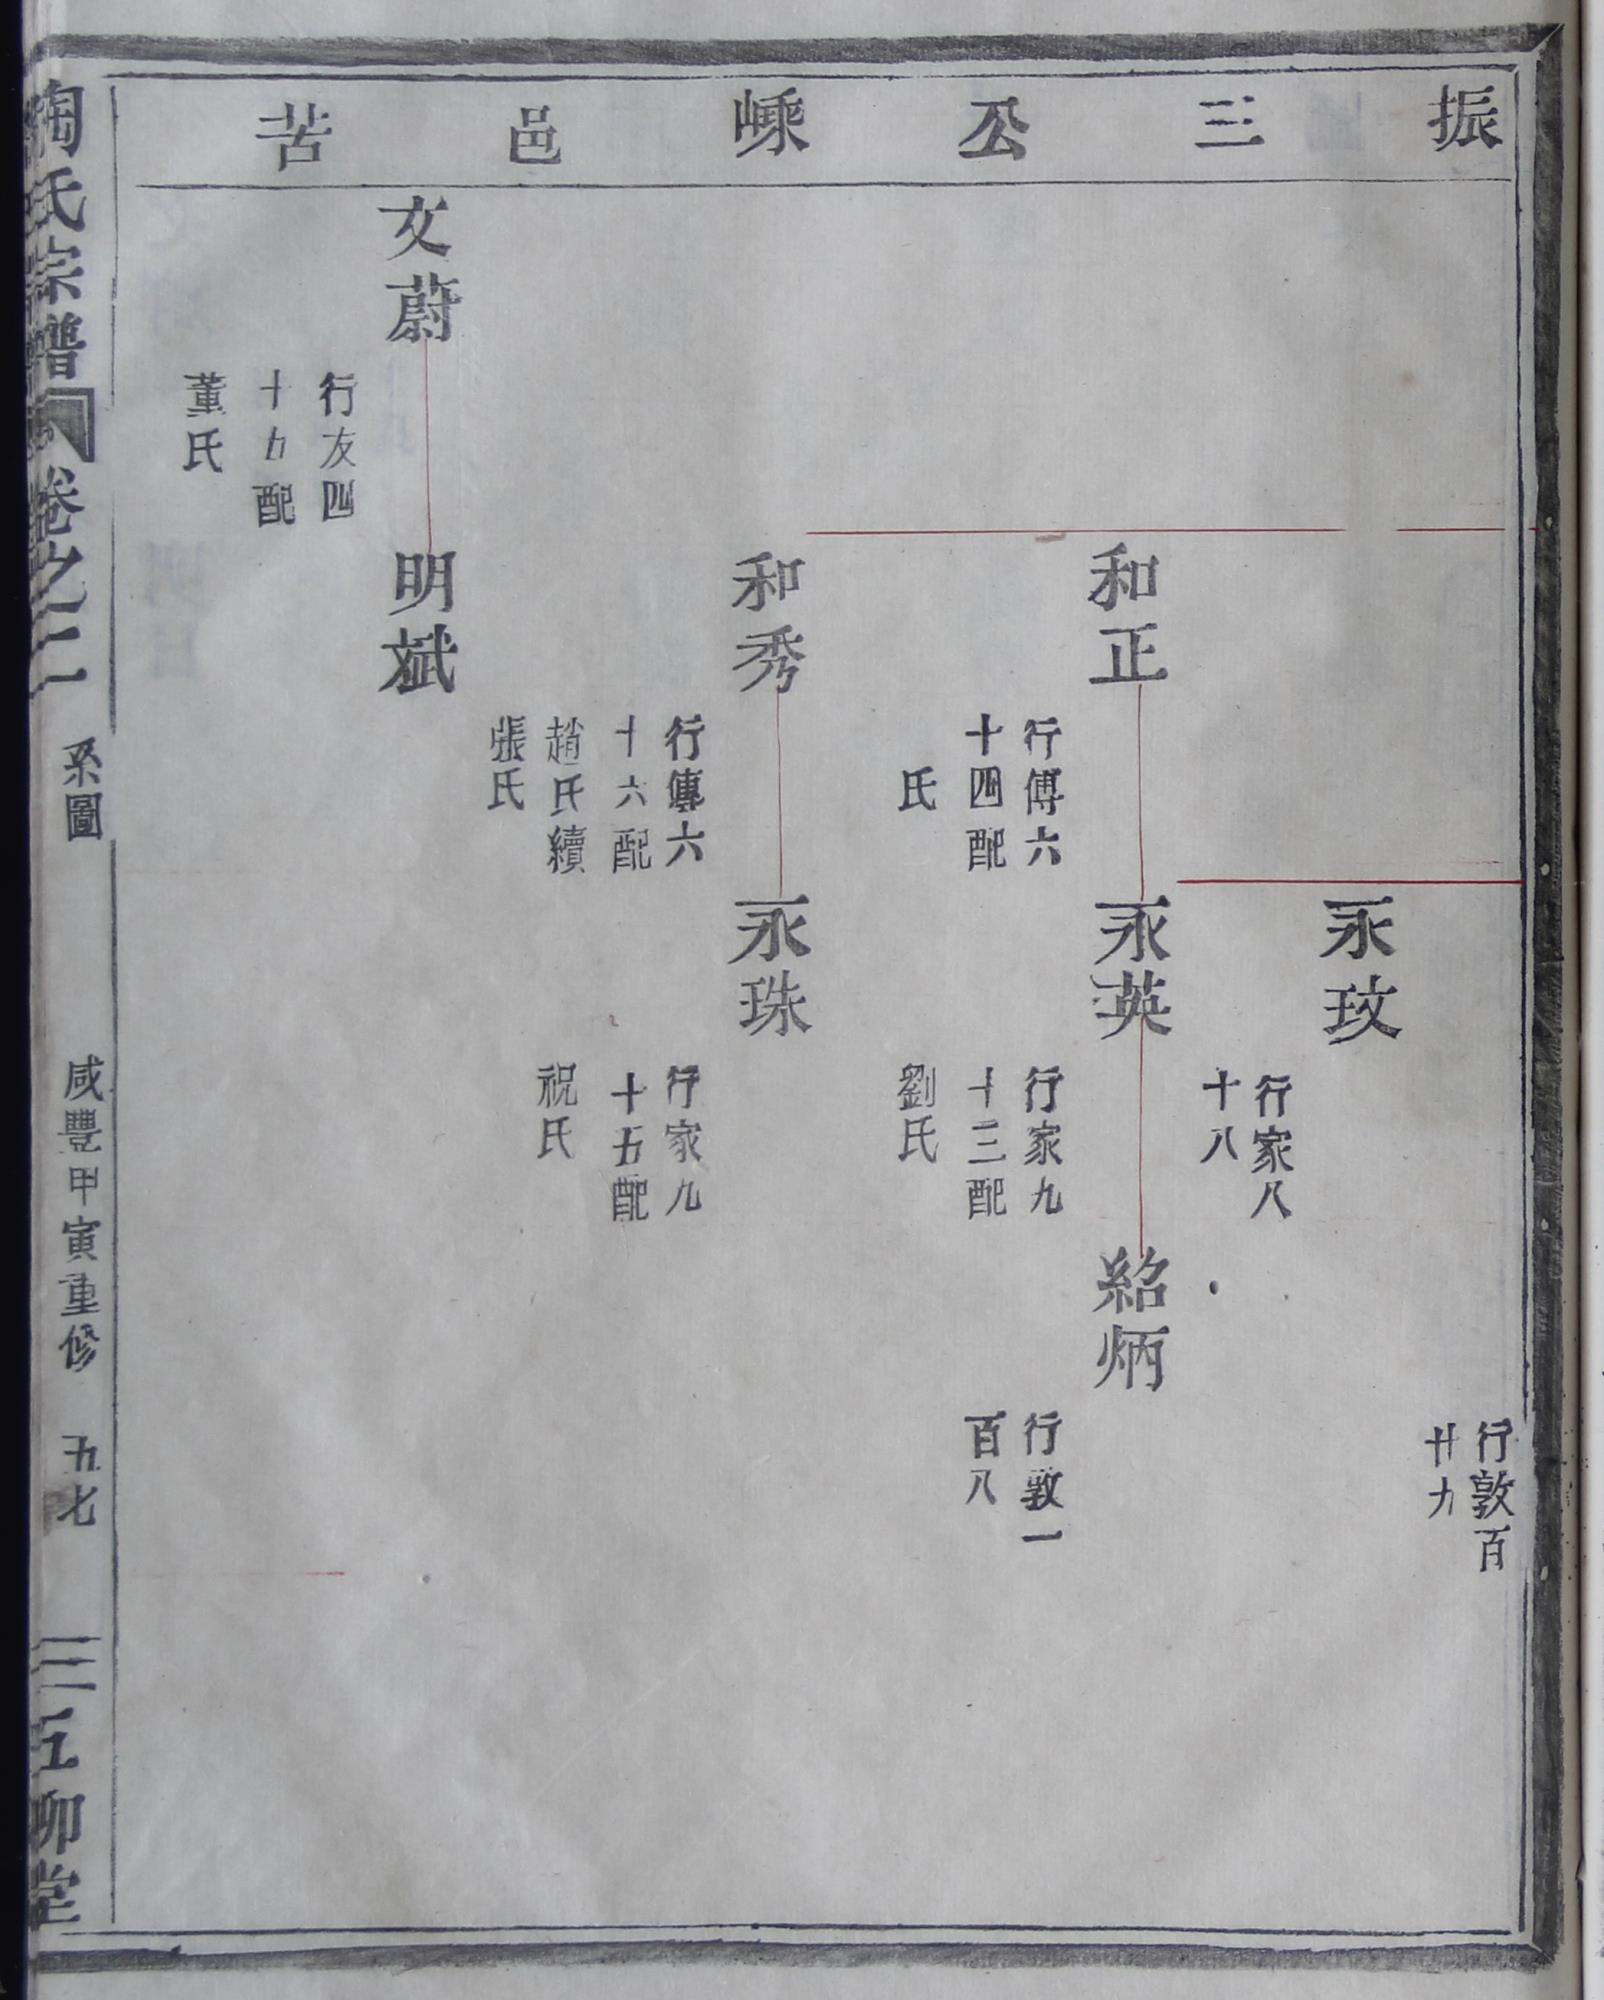 振三公嵊邑苦
行敦百
廿九
永玟
行家八
十八
和正
行傅六
十四配
氏
永英
行家九
十三配
劉氏
紹炳
行敦一
百八
和秀
行傳六
十六配
趙氏續
張氏
永珠
行家九
十五配
祝氏
文蔚
行友四
十九配
董氏
明斌
陶氏宗譜 卷之二 系圖 咸豐甲寅重修 五七 五柳堂